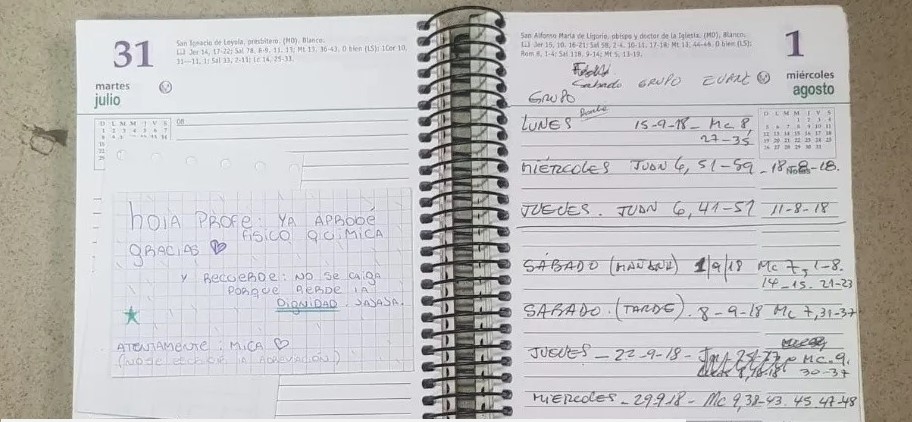 31
martes
julio
San Ignacio de Loyola, presbítero. (MO). Blanco.
Jer 14, 17-22; Sal 78, 8-9. 11. 13; Mt 13, 36-43. O bien (LS): 1Cor 10,
31—11, 1; Sal 33, 2-11; Lc 14, 25-33.
D L M M J V S
HOLA PROFE: YA APROBÉ
FISICO QUÍMICA
GRACIAS ♡
Y RECUERDE: NO SE CAIGA
PORQUE PIERDE LA
DIGNIDAD. JAJAJA.
ATENTAMENTE: MICA ♡
(NO SE ESCRIBIR LA ABREVIACIÓN)
San Alfonso María de Ligorio, obispo y doctor de la Iglesia. (MO). Blanco.
Jer 15, 10. 16-21; Sal 58, 2-4. 10-11. 17-18; Mt 13, 44-46. O bien (LS):
Rom 8, 1-4; Sal 118, 9-14; Mt 5, 13-19.
1
miércoles
agosto
D L M M J V S
1 2 3 4
5 6 7 8 9 10 11
12 13 14 15 16 17 18
19 20 21 22 23 24 25
26 27 28 29 30 31
Sabado GRUPO
GRUPO
LUNES 15-9-18 - Mc 8,
27-35
MIÉRCOLES JUAN 6, 51-59 - 18-8-18.
JUEVES. JUAN 6, 41-51 11-8-18
SÁBADO (MAÑANA) 1/9/18 Mc 7, 1-8.
14-15. 21-23
SABADO. (TARDE). 8-9-18 Mc 7, 31-37
JUEVES - 22-9-18 - Mc. 9.
30-37
MIERCOLES - 29-9-18 - Mc 9, 38-43. 45. 47-48